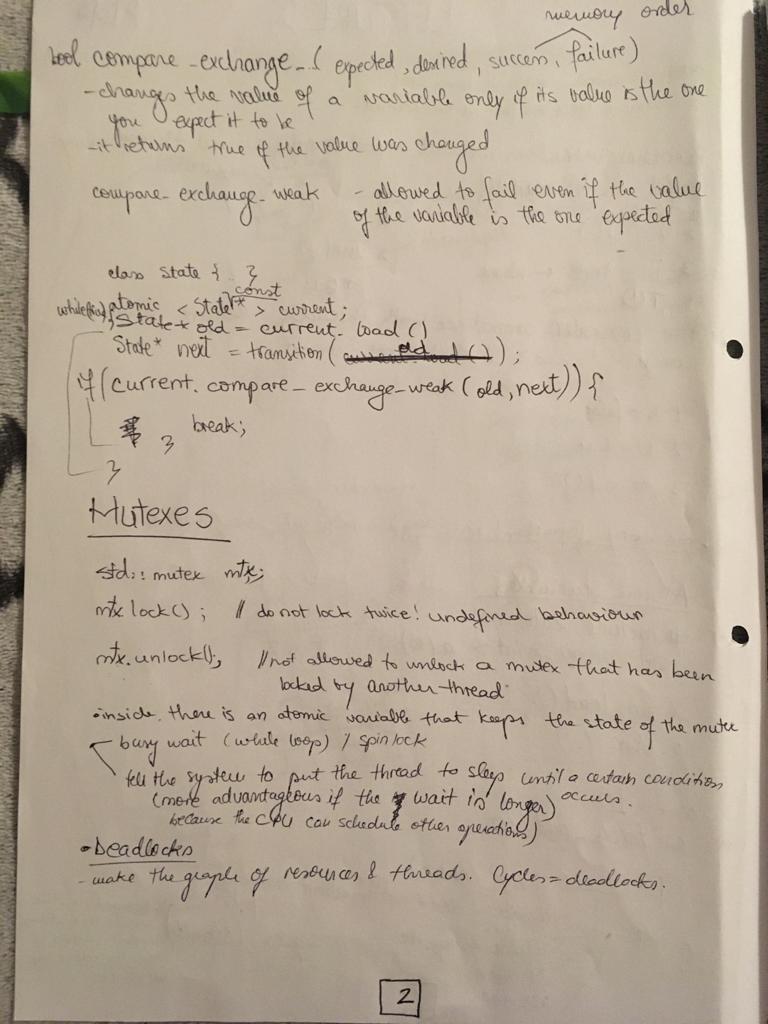 memory order
bool compare_exchange_( expected, desired, success, failure)
- changes the value of a variable only if its value is the one
you expect it to be
- it returns true if the value was changed
compare_exchange_weak - allowed to fail even if the value
of the variable is the one expected
class State { }
const
atomic < State* > current;
while(true){ State* old = current. load ()
State* next = transition( old );
if(current. compare_exchange_weak (old, next)) {
break;
}
}
Mutexes
std:: mutex mtx;
mtx.lock(); // do not lock twice! undefined behaviour
mtx.unlock(); // not allowed to unlock a mutex that has been
locked by another thread
• inside, there is an atomic variable that keeps the state of the mutex
busy wait (while loop) / spinlock
tell the system to put the thread to sleep until a certain condition
(more advantageous if the wait is longer) occurs.
because the CPU can schedule other operations)
• Deadlocks
- make the graph of resources & threads. Cycles = deadlocks.
2